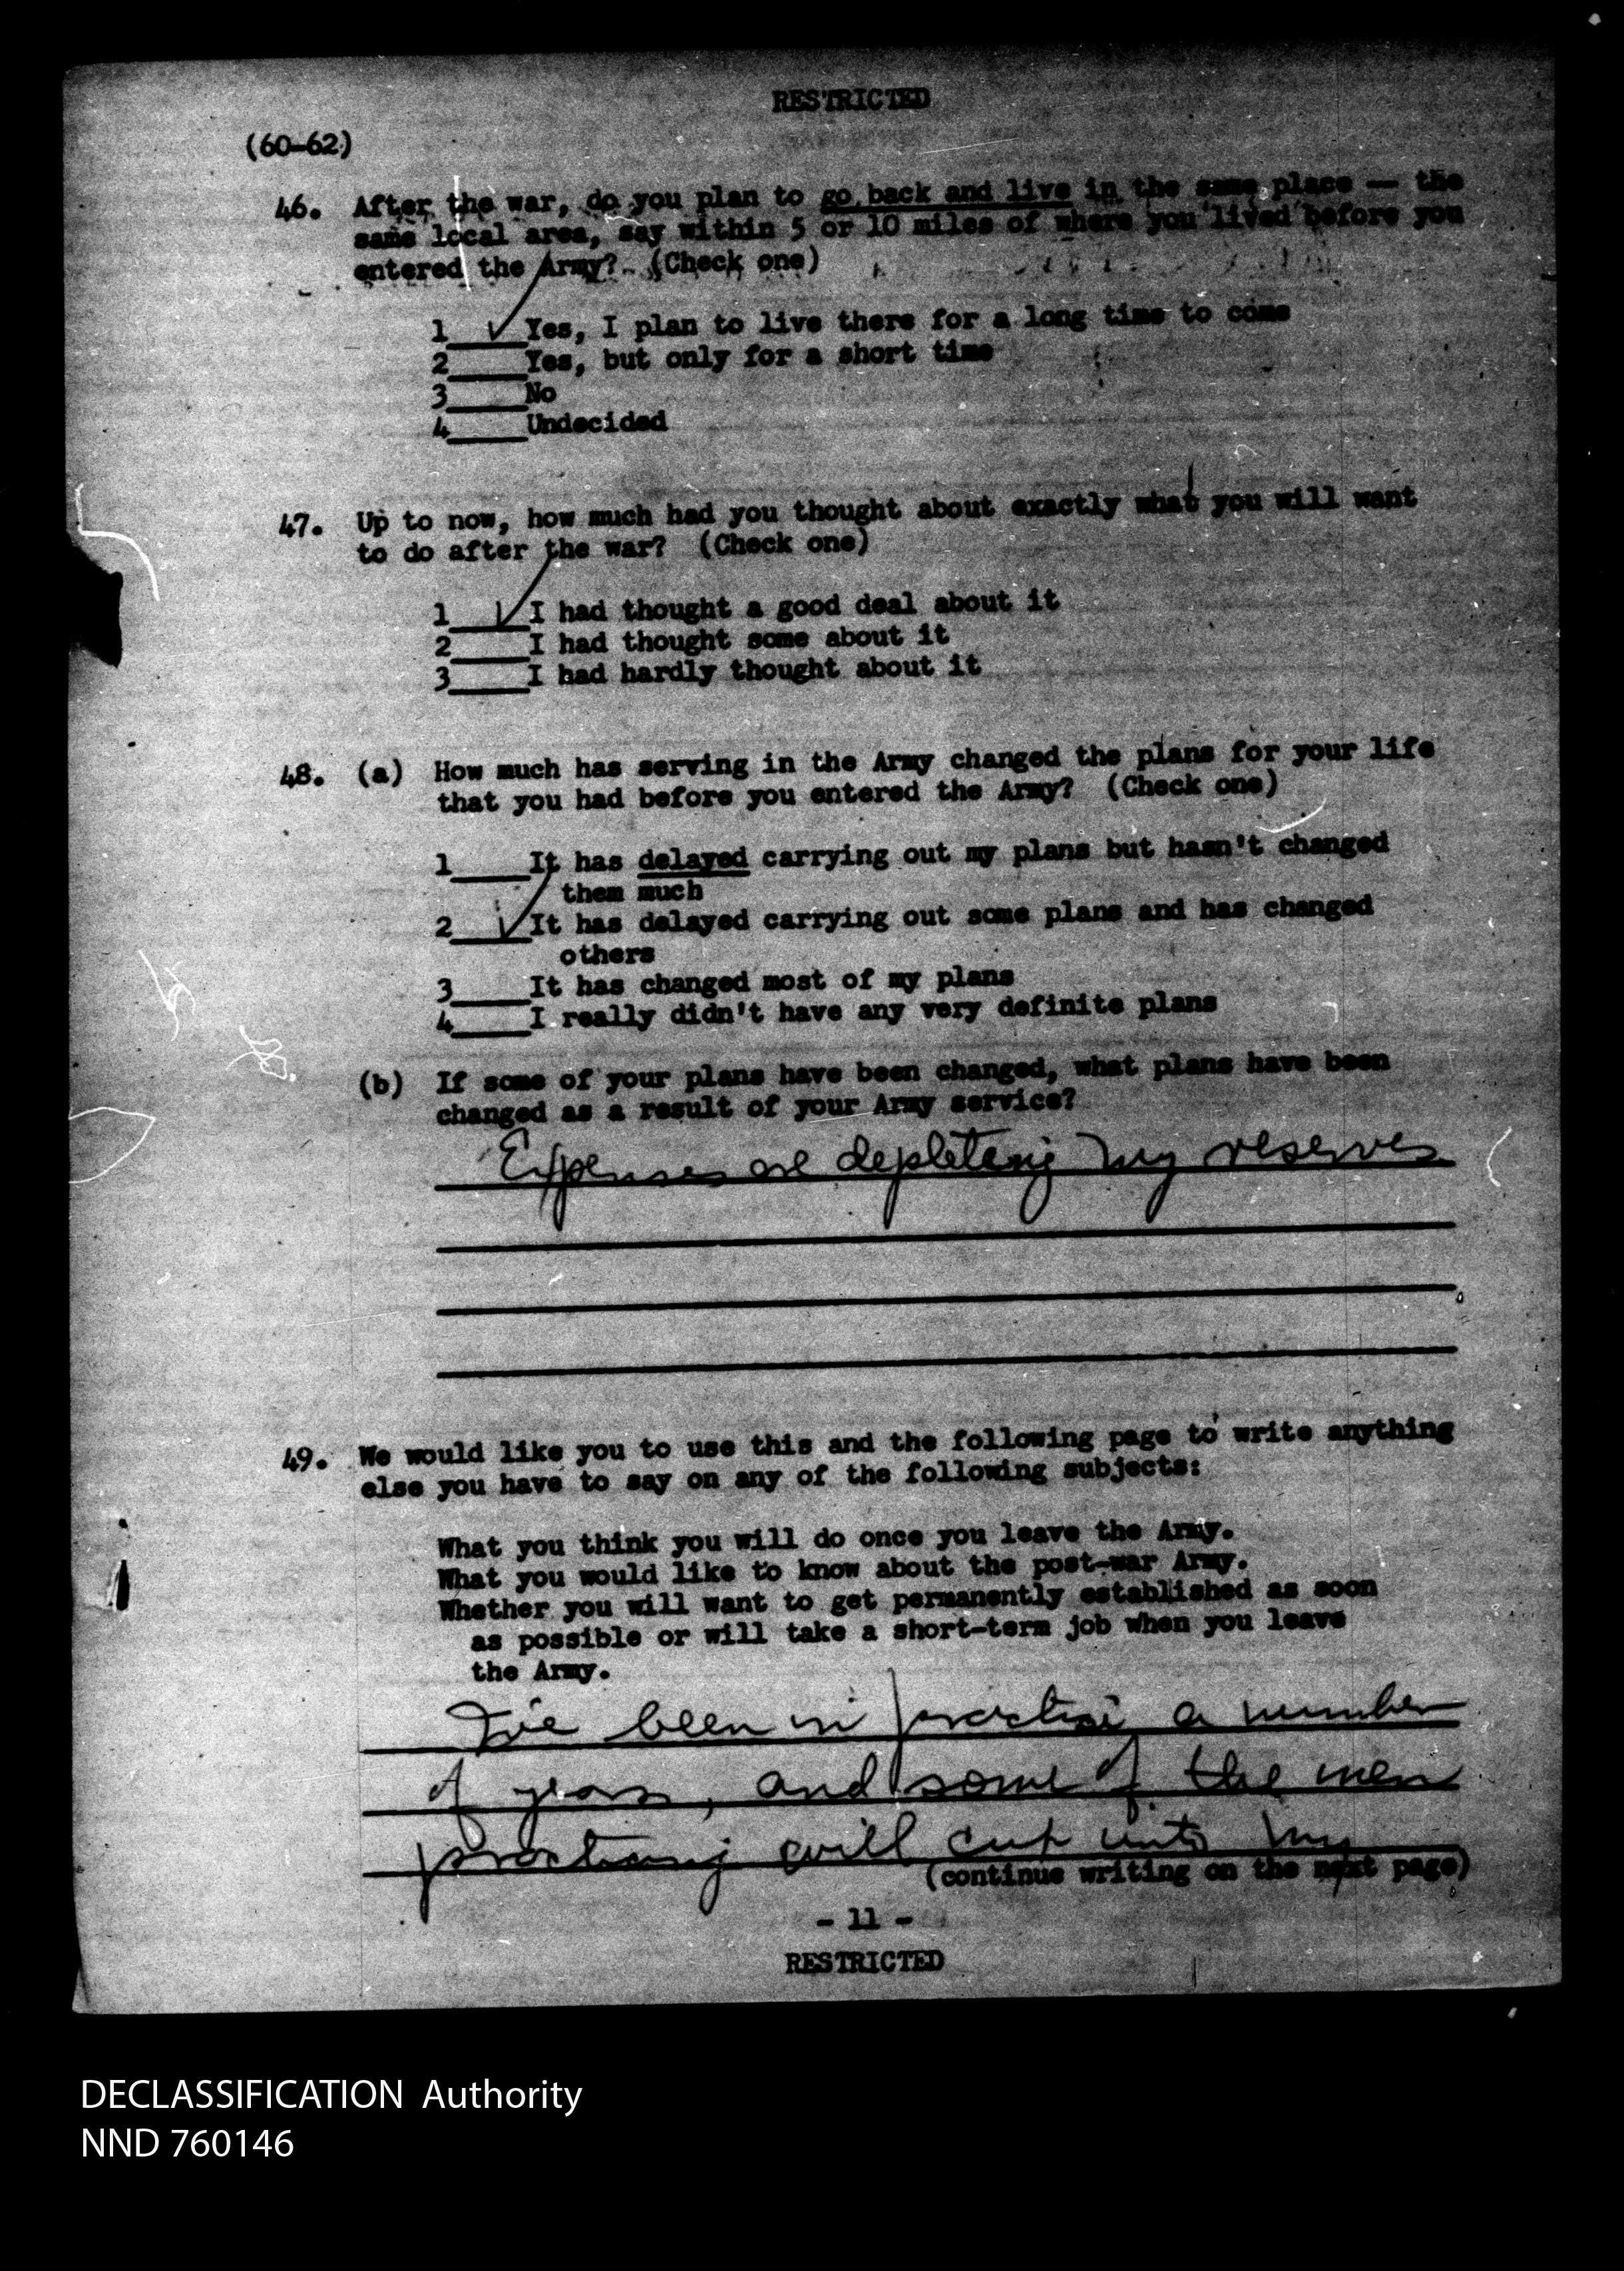 RESTRICTED
(60-62)
46. After the war, do you plan to go back and live in the same place -- the
same local area, say within 5 or 10 miles of where you lived before you
entered the Army? (Check one)
1 ✓ Yes, I plan to live there for a long time to come
2 Yes, but only for a short time
3 No
4 Undecided
47. Up to now, how much had you thought about exactly what you will want
to do after the war? (Check one)
1 ✓ I had thought a good deal about it
2 I had thought some about it
3 I had hardly thought about it
48. (a) How much has serving in the Army changed the plans for your life
that you had before you entered the Army? (Check one)
1 It has delayed carrying out my plans but hasn't changed
them much
2 ✓ It has delayed carrying out some plans and has changed
others
3 It has changed most of my plans
4 I really didn't have any very definite plans
(b) If some of your plans have been changed, what plans have been
changed as a result of your Army service?
Expenses are depleting my reserves
49. We would like you to use this and the following page to write anything
else you have to say on any of the following subjects:
What you think you will do once you leave the Army.
What you would like to know about the post-war Army.
Whether you will want to get permanently established as soon
as possible or will take a short-term job when you leave
the Army.
I've been in practice a number
of years, and some of the men
practicing will cut into my
(continue writing on the next page)
- 11 -
RESTRICTED
DECLASSIFICATION Authority
NND 760146